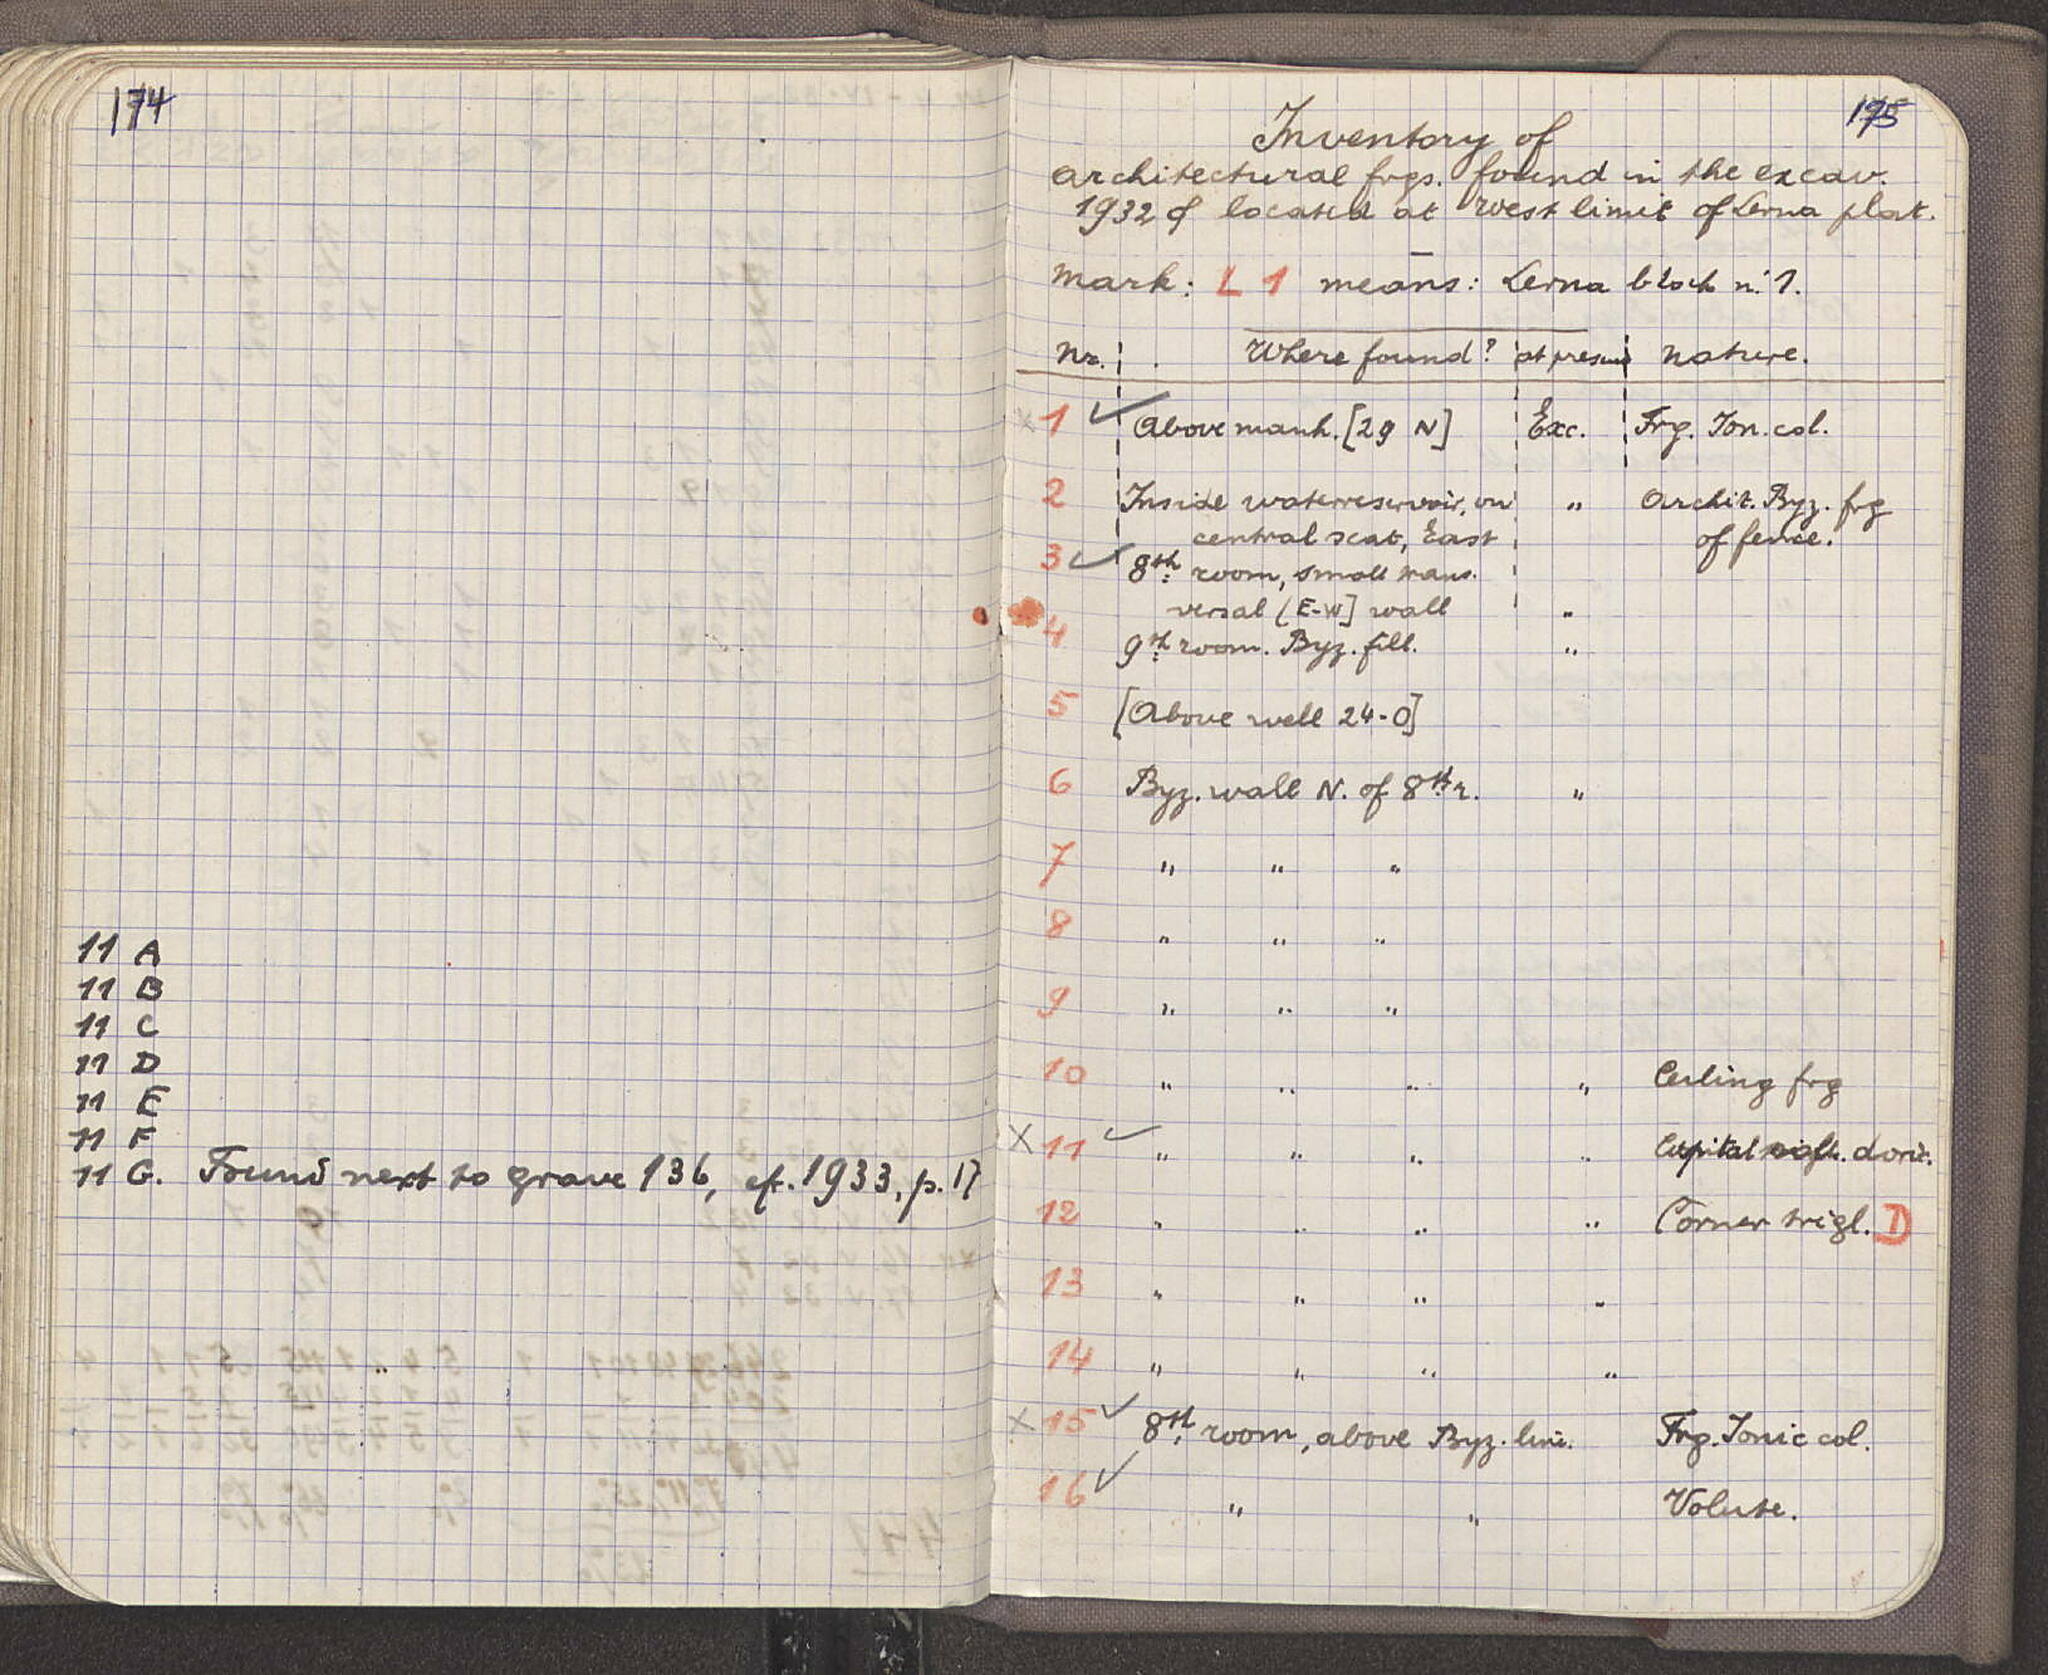 174
11 A
11 B
11 C
11 D
11 E
11 F
11 G. Found next to grave 136, cf. 1933, p. 17
175
Inventory of
architectural frgs. found in the excav.
1932 & located at west limit of Lerna plat.
Mark: L 1 means: Lerna block n. 1.
Nr. Where found? at present nature.
x 1 ✓ Above manh. [29 N] Exc. Frg. Ion. col.
2 Inside waterreservoir, on " Archit. Byz. frg
central seat, East of fence.
3 ✓ 8th room, small trans.
versal [E-W] wall "
4 9th room. Byz. fill. "
5 [Above well 24-O]
6 Byz. wall N. of 8th r. "
7 " " "
8 " " "
9 " " "
10 " " " " Ceiling frg
x 11 ✓ " " " " Capital doric.
12 " " " " Corner trigl. D
13 " " " "
14 " " " "
x 15 ✓ 8th room, above Byz. line. Frg. Ionic col.
16 ✓ " " Volute.